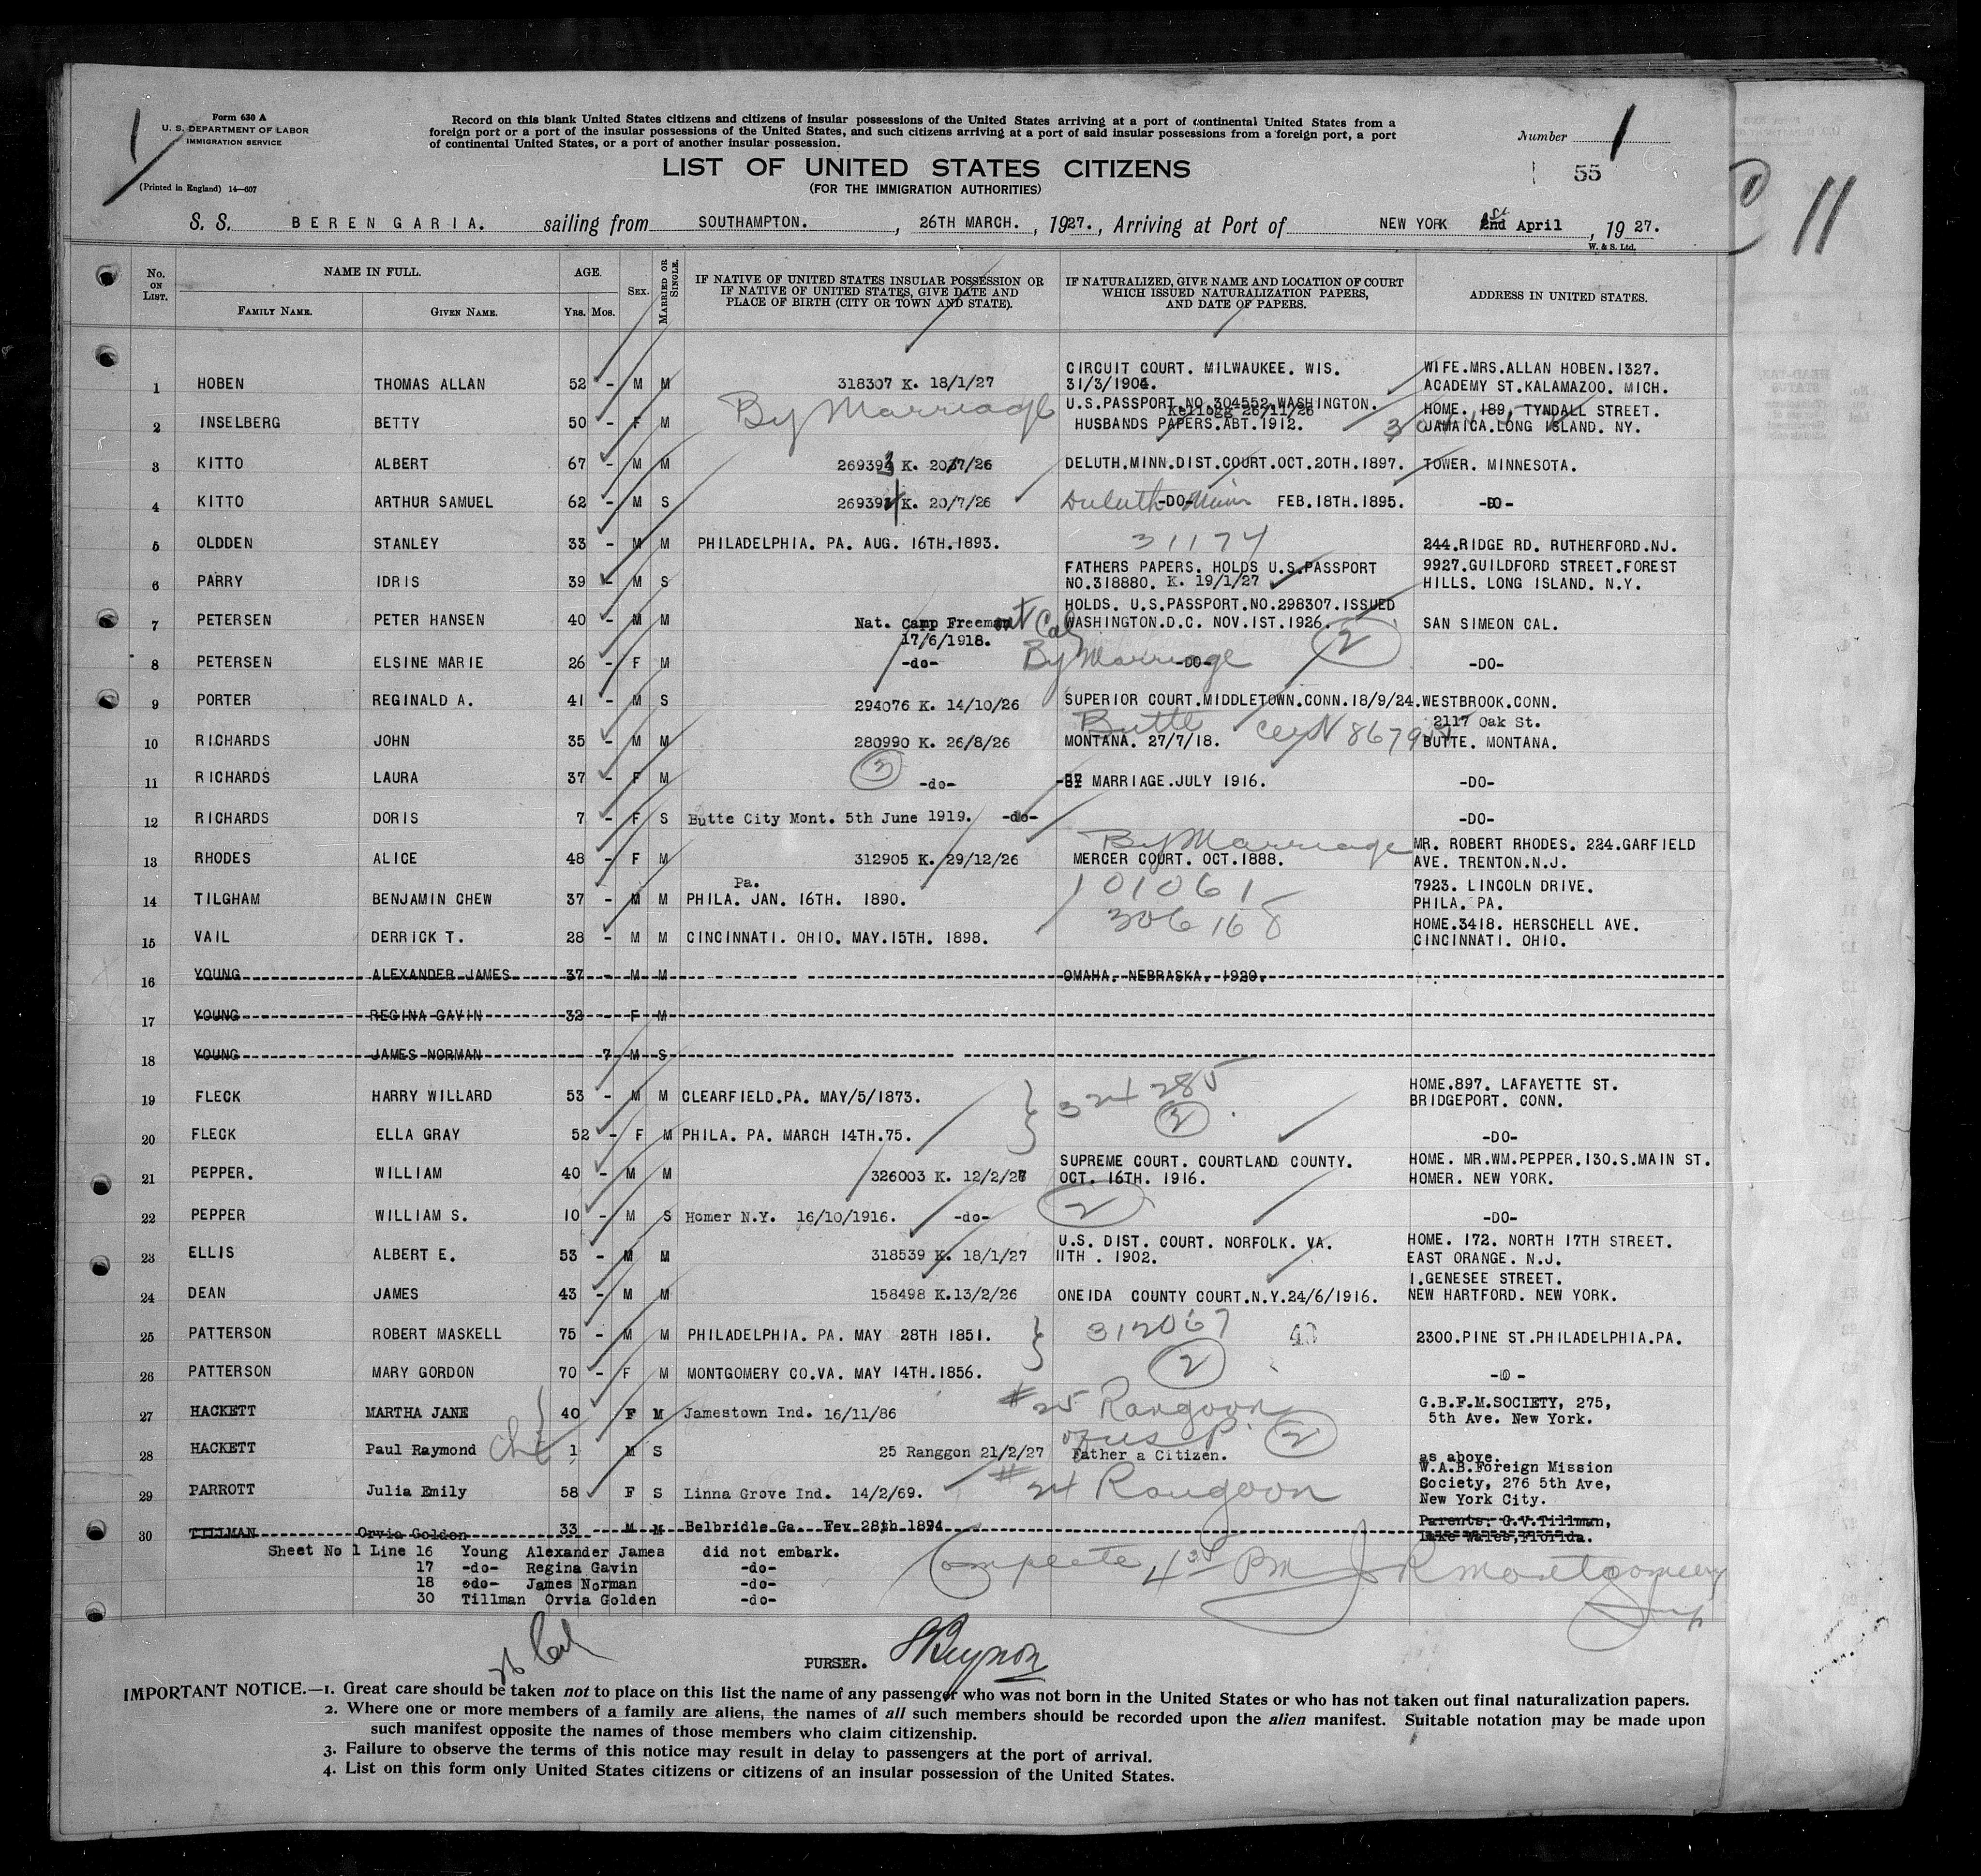 Form 630 A
U. S. DEPARTMENT OF LABOR
IMMIGRATION SERVICE
(Printed in England) 14—607
Record on this blank United States citizens and citizens of insular possessions of the United States arriving at a port of continental United States from a
foreign port or a port of the insular possessions of the United States, and such citizens arriving at a port of said insular possessions from a foreign port, a port
of continental United States, or a port of another insular possession.
Number 1
55
11
LIST OF UNITED STATES CITIZENS
(FOR THE IMMIGRATION AUTHORITIES)
S. S. BERENGARIA. sailing from SOUTHAMPTON. , 26TH MARCH. , 1927. , Arriving at Port of NEW YORK 2nd 1st April , 1927.
W. & S. Ltd.
No. ON LIST. NAME IN FULL. AGE. SEX. MARRIED OR SINGLE. IF NATIVE OF UNITED STATES INSULAR POSSESSION OR IF NATIVE OF UNITED STATES, GIVE DATE AND PLACE OF BIRTH (CITY OR TOWN AND STATE). IF NATURALIZED, GIVE NAME AND LOCATION OF COURT WHICH ISSUED NATURALIZATION PAPERS, AND DATE OF PAPERS. ADDRESS IN UNITED STATES.
FAMILY NAME. GIVEN NAME. Yrs. Mos.
1 HOBEN THOMAS ALLAN 52 - M M 318307 K. 18/1/27 CIRCUIT COURT. MILWAUKEE. WIS. 31/3/1904. WIFE.MRS.ALLAN HOBEN.1327. ACADEMY ST.KALAMAZOO. MICH.
2 INSELBERG BETTY 50 - F M By Marriage U.S.PASSPORT.NO.304552.WASHINGTON. Kellogg 26/11/26 HUSBANDS PAPERS.ABT.1912. HOME. 189. TYNDALL STREET. JAMAICA.LONG ISLAND. NY.
3 KITTO ALBERT 67 - M M 269393 K. 20/7/26 DELUTH.MINN.DIST.COURT.OCT.20TH.1897. TOWER. MINNESOTA.
4 KITTO ARTHUR SAMUEL 62 - M S 269394 K. 20/7/26 Duluth -DO- Minn FEB.18TH.1895. -DO-
5 OLDDEN STANLEY 33 - M M PHILADELPHIA. PA. AUG. 16TH.1893. 31174 244.RIDGE RD. RUTHERFORD.NJ.
6 PARRY IDRIS 39 - M S FATHERS PAPERS. HOLDS U.S.PASSPORT NO.318880. K. 19/1/27 9927.GUILDFORD STREET.FOREST HILLS. LONG ISLAND. N.Y.
7 PETERSEN PETER HANSEN 40 - M M Nat. Camp Freemont Cal 17/6/1918. HOLDS. U.S.PASSPORT.NO.298307.ISSUED WASHINGTON.D.C. NOV.1ST.1926. 2 SAN SIMEON CAL.
8 PETERSEN ELSINE MARIE 26 - F M -do- By Marriage -DO- -DO-
9 PORTER REGINALD A. 41 - M S 294076 K. 14/10/26 SUPERIOR COURT.MIDDLETOWN.CONN.18/9/24. WESTBROOK.CONN.
10 RICHARDS JOHN 35 - M M 280990 K. 26/8/26 Butte MONTANA. 27/7/18. 2117 Oak St. BUTTE. MONTANA.
11 RICHARDS LAURA 37 - F M 3 -do- BY MARRIAGE.JULY 1916. -DO-
12 RICHARDS DORIS 7 - F S Butte City Mont. 5th June 1919. -do- -DO-
13 RHODES ALICE 48 - F M 312905 K. 29/12/26 By Marriage MERCER COURT. OCT.1888. MR. ROBERT RHODES. 224.GARFIELD AVE. TRENTON.N.J.
14 TILGHAM BENJAMIN CHEW 37 - M M PHILA. Pa. JAN. 16TH. 1890. 101061 7923. LINCOLN DRIVE. PHILA. PA.
15 VAIL DERRICK T. 28 - M M CINCINNATI. OHIO. MAY.15TH. 1898. 306168 HOME.3418. HERSCHELL AVE. CINCINNATI. OHIO.
16 YOUNG ALEXANDER JAMES 37 - M M OMAHA. NEBRASKA. 1920.
17 YOUNG REGINA GAVIN 32 - F M
18 YOUNG JAMES NORMAN 7 M S
19 FLECK HARRY WILLARD 53 - M M CLEARFIELD.PA. MAY/5/1873. 324285 2 HOME.897. LAFAYETTE ST. BRIDGEPORT. CONN.
20 FLECK ELLA GRAY 52 - F M PHILA. PA. MARCH 14TH.75. -DO-
21 PEPPER. WILLIAM 40 - M M 326003 K. 12/2/27 SUPREME COURT. COURTLAND COUNTY. OCT. 16TH. 1916. HOME. MR.WM.PEPPER.130.S.MAIN ST. HOMER. NEW YORK.
22 PEPPER WILLIAM S. 10 - M S Homer N.Y. 16/10/1916. -do- 2 -DO-
23 ELLIS ALBERT E. 53 - M M 318539 K. 18/1/27 U.S. DIST. COURT. NORFOLK. VA. 11TH . 1902. HOME. 172. NORTH 17TH STREET. EAST ORANGE. N.J.
24 DEAN JAMES 43 - M M 158498 K.13/2/26 ONEIDA COUNTY COURT.N.Y.24/6/1916. 1.GENESEE STREET. NEW HARTFORD. NEW YORK.
25 PATTERSON ROBERT MASKELL 75 - M M PHILADELPHIA. PA. MAY 28TH 1851. 312067 2300.PINE ST.PHILADELPHIA.PA.
26 PATTERSON MARY GORDON 70 - F M MONTGOMERY CO.VA. MAY 14TH.1856. 2 -DO-
27 HACKETT MARTHA JANE 40 F M Jamestown Ind. 16/11/86 #25 Rangoon G.B.F.M.SOCIETY, 275, 5th Ave. New York.
28 HACKETT Paul Raymond 1 M S 25 Ranggon 21/2/27 2 Father a Citizen. as above.
29 PARROTT Julia Emily 58 F S Linna Grove Ind. 14/2/69. #24 Rangoon W.A.B.Foreign Mission Society, 276 5th Ave, New York City.
30 TILLMAN Orvia Golden 33 M M Belbridle Ga. Fev 28th 1894 Parents: G.V.Tillman, Lake Wales,Florida.
Sheet No 1 Line 16 Young Alexander James did not embark.
17 -do- Regina Gavin -do-
18 odo- James Norman -do-
30 Tillman Orvia Golden -do-
Complete 4 35 PM J R Montgomery
PURSER.
IMPORTANT NOTICE.—1. Great care should be taken not to place on this list the name of any passenger who was not born in the United States or who has not taken out final naturalization papers.
2. Where one or more members of a family are aliens, the names of all such members should be recorded upon the alien manifest. Suitable notation may be made upon
such manifest opposite the names of those members who claim citizenship.
3. Failure to observe the terms of this notice may result in delay to passengers at the port of arrival.
4. List on this form only United States citizens or citizens of an insular possession of the United States.